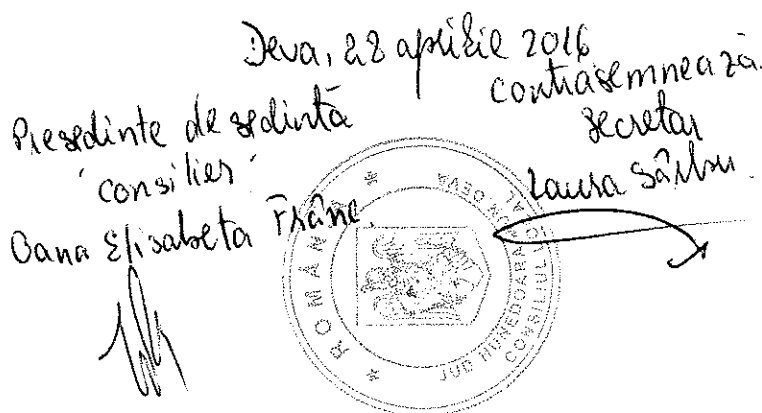 Deva, 28 aprilie 2016
Presedinte de sedintă
consilier
Oana Elisabeta Frânc
contrasemnează
secretar
Laura Sârbu
ROMÂNIA
JUD HUNEDOARA MUN DEVA
CONSILIUL LOCAL